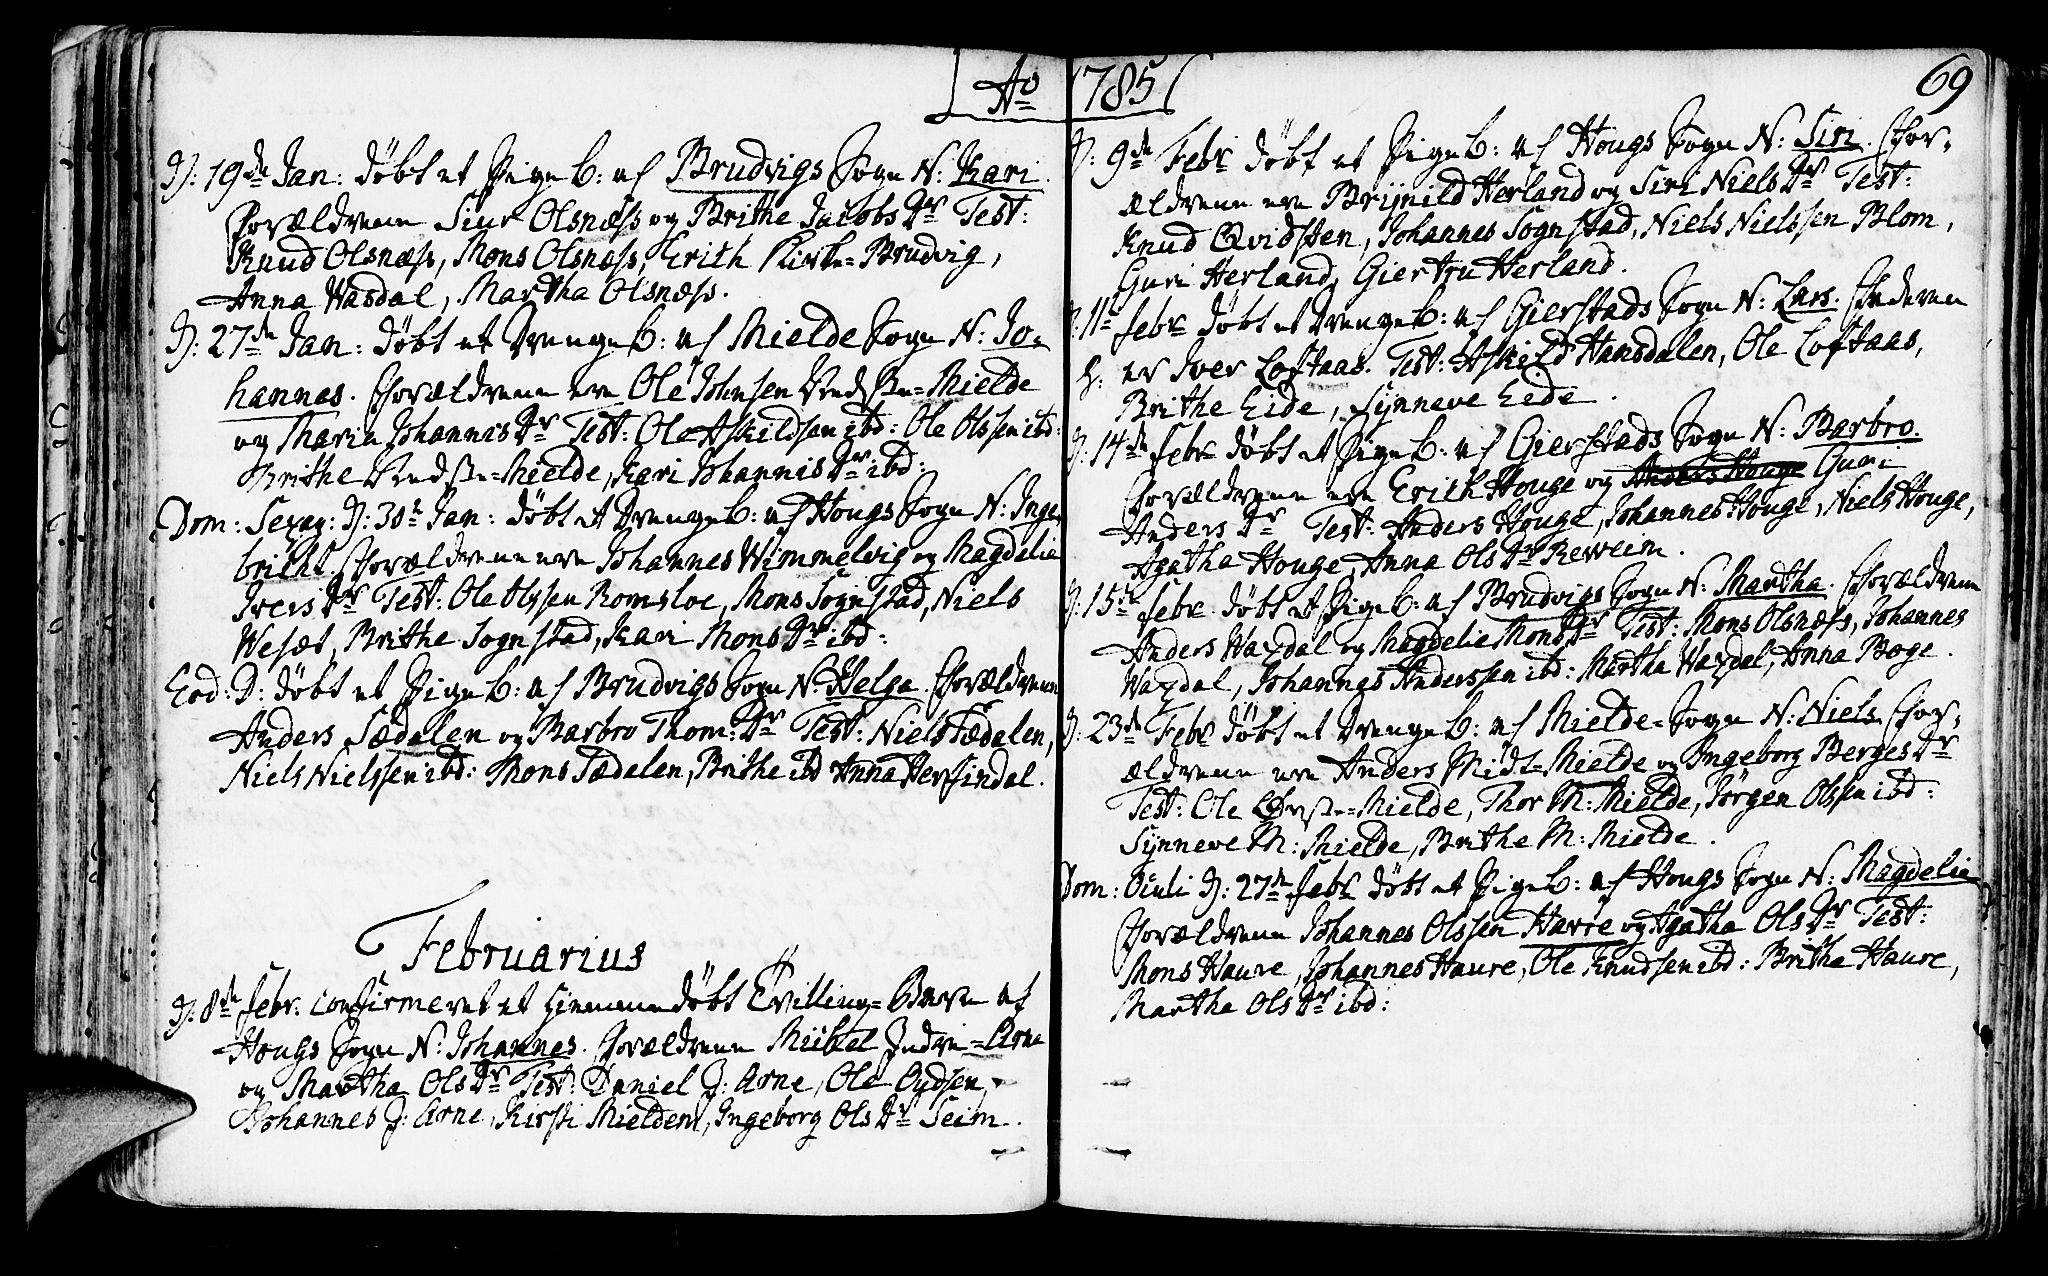 Ao 1785
69
D: 19de Jan: døbt et Pige B: af Brudvigs Sogn N: Kari.
Forældrene Siur Olsnæss og Brithe Jacobs Dr Test:
Knud Olsnæss, Mons Olsnæss, Erich Kirke=Brudvig,
Anna Wasdal, Martha Olsnæss.
D: 27de Jan: døbt et Drenge B: af Mielde Sogn N: Jo-
hannes. Forældrene ere Ole Johnsen Nedste=Mielde
og Maria Johannis Dr Test: Ole Askildsen ibd: Ole Olssen ibd:
Brithe Nedste=Mielde, Kari Johannis Dr ibd:
Dom: Sexag: D: 30te Jan: døbt et Drenge B: af Hougs Sogn N: Inge-
bricht. Forældrene ere Johannes Wimmelvig og Magdelie
Ivers Dr Test: Ole Olssen Romsloe, Mons Sognstad, Niels
Wesæt, Brithe Sognstad, Kari Mons Dr ibd:
Eod: D: døbt et Pige B: af Brudvigs Sogn N: Helga. Forældrene
Anders Sædalen og Barbro Thom: Dr Test: Niels Sædalen,
Niels Nielssen ibd: Mons Sædalen, Brithe ibd Anna Herfindal.
Februarius
D: 8de Febr: confirmeret et hiemmedøbt Tvilling=Barn af
Hougs Sogn N: Johannes. Forældrene Mikkel Indre=Arne
og Martha Ols Dr Test: Daniel J: Arne, Ole Oydsen,
Johannes J: Arne, Kirsti Mielden, Ingeborg Ols Dr Seim.
D: 9de Febr døbt et Pige B: af Hougs Sogn N: Siri. For-
ældrene ere Brynild Herland og Siri Niels Dr Test:
Knud Qvidsten, Johannes Sognstad, Niels Nielssen Blom,
Guri Herland, Giertru Herland.
D: 11te Febr døbt et Drenge B: af Gierstads Sogn N: Lars. Faderen
er Iver Loftaas. Test: Askild Hansdalen, Ole Loftaas,
Brithe Eide, Synneve Eide.
D: 14de Febr døbt et Pige B: af Gierstads Sogn N: Barbro.
Forældrene ere Erich Houge og Anders Houge Guri
Anders Dr Test: Anders Houge, Johannes Houge, Niels Houge,
Agatha Houge, Anna Ols Dr Reweim.
D: 15de Febr. døbt et Pige B: af Brudvigs Sogn N: Martha. Forældrene
Anders Waxdal og Magdelie Mons Dr Test: Mons Olsnæss, Johannes
Waxdal, Johannes Anderssen ibd: Martha Waxdal, Anna Boge.
D: 23de Febr døbt et Drenge B: af Mielde=Sogn N: Niels For-
ældrene ere Anders Midt=Mielde og Ingeborg Berges Dr
Test: Ole Øvste=Mielde, Thor M: Mielde, Jørgen Olssen ibd:
Synneve M: Mielde, Brithe M: Mielde.
Dom: Oculi D: 27de Febr døbt et Pige B: af Hougs Sogn N: Magdelie
Forældrene Johannes Olssen Havre og Agatha Ols Dr Test:
Mons Havre, Johannes Havre, Ole Knudsen ibd: Britha Havre,
Martha Ols Dr ibd: